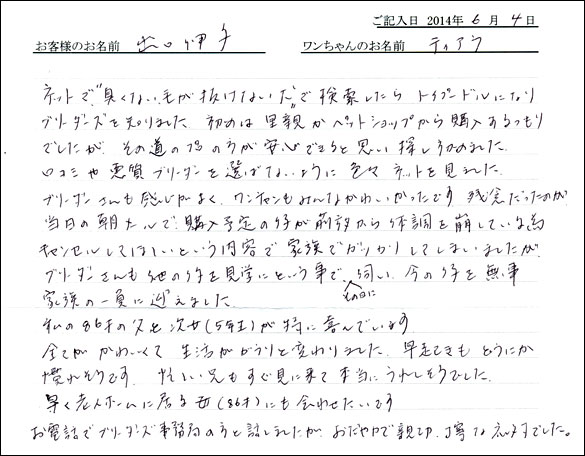 ご記入日 2014年 6月 4日
お客様のお名前 出口 子 ワンちゃんのお名前 ティアラ
ネットで"臭くない毛が抜けない犬"で検索したら トイプードルになり
ブリーダーズを知りました 初めは里親かペットショップから購入するつもり
でしたが、その道のプロの方が安心できると思い探し始めました
口コミや悪質ブリーダーを選ばないように色々ネットを見ました
ブリーダーさんも感じがよく、ワンチャンもみんなかわいかったです 残念だったのが
当日の朝メールで購入予定の仔が前夜から体調を崩している為
キャンセルしてほしいという内容で家族でガッカリしてしまいましたが
ブリーダーさんも他の仔を見学にという事で、その日に伺い、今の仔を無事
家族の一員に迎えました
私の86才の父と次女(5年生)が特に喜んでいます
全てがかわいくて 生活がガラリと変わりました 早起きもどうにか
慣れそうです 忙しい兄もすぐ見に来て本当にうれしそうでした
早く老人ホームに居る母(86才)にも会わせたいです
お電話でブリーダーズ事務局の方と話しましたが、おだやかで親切、丁寧な対応でした。